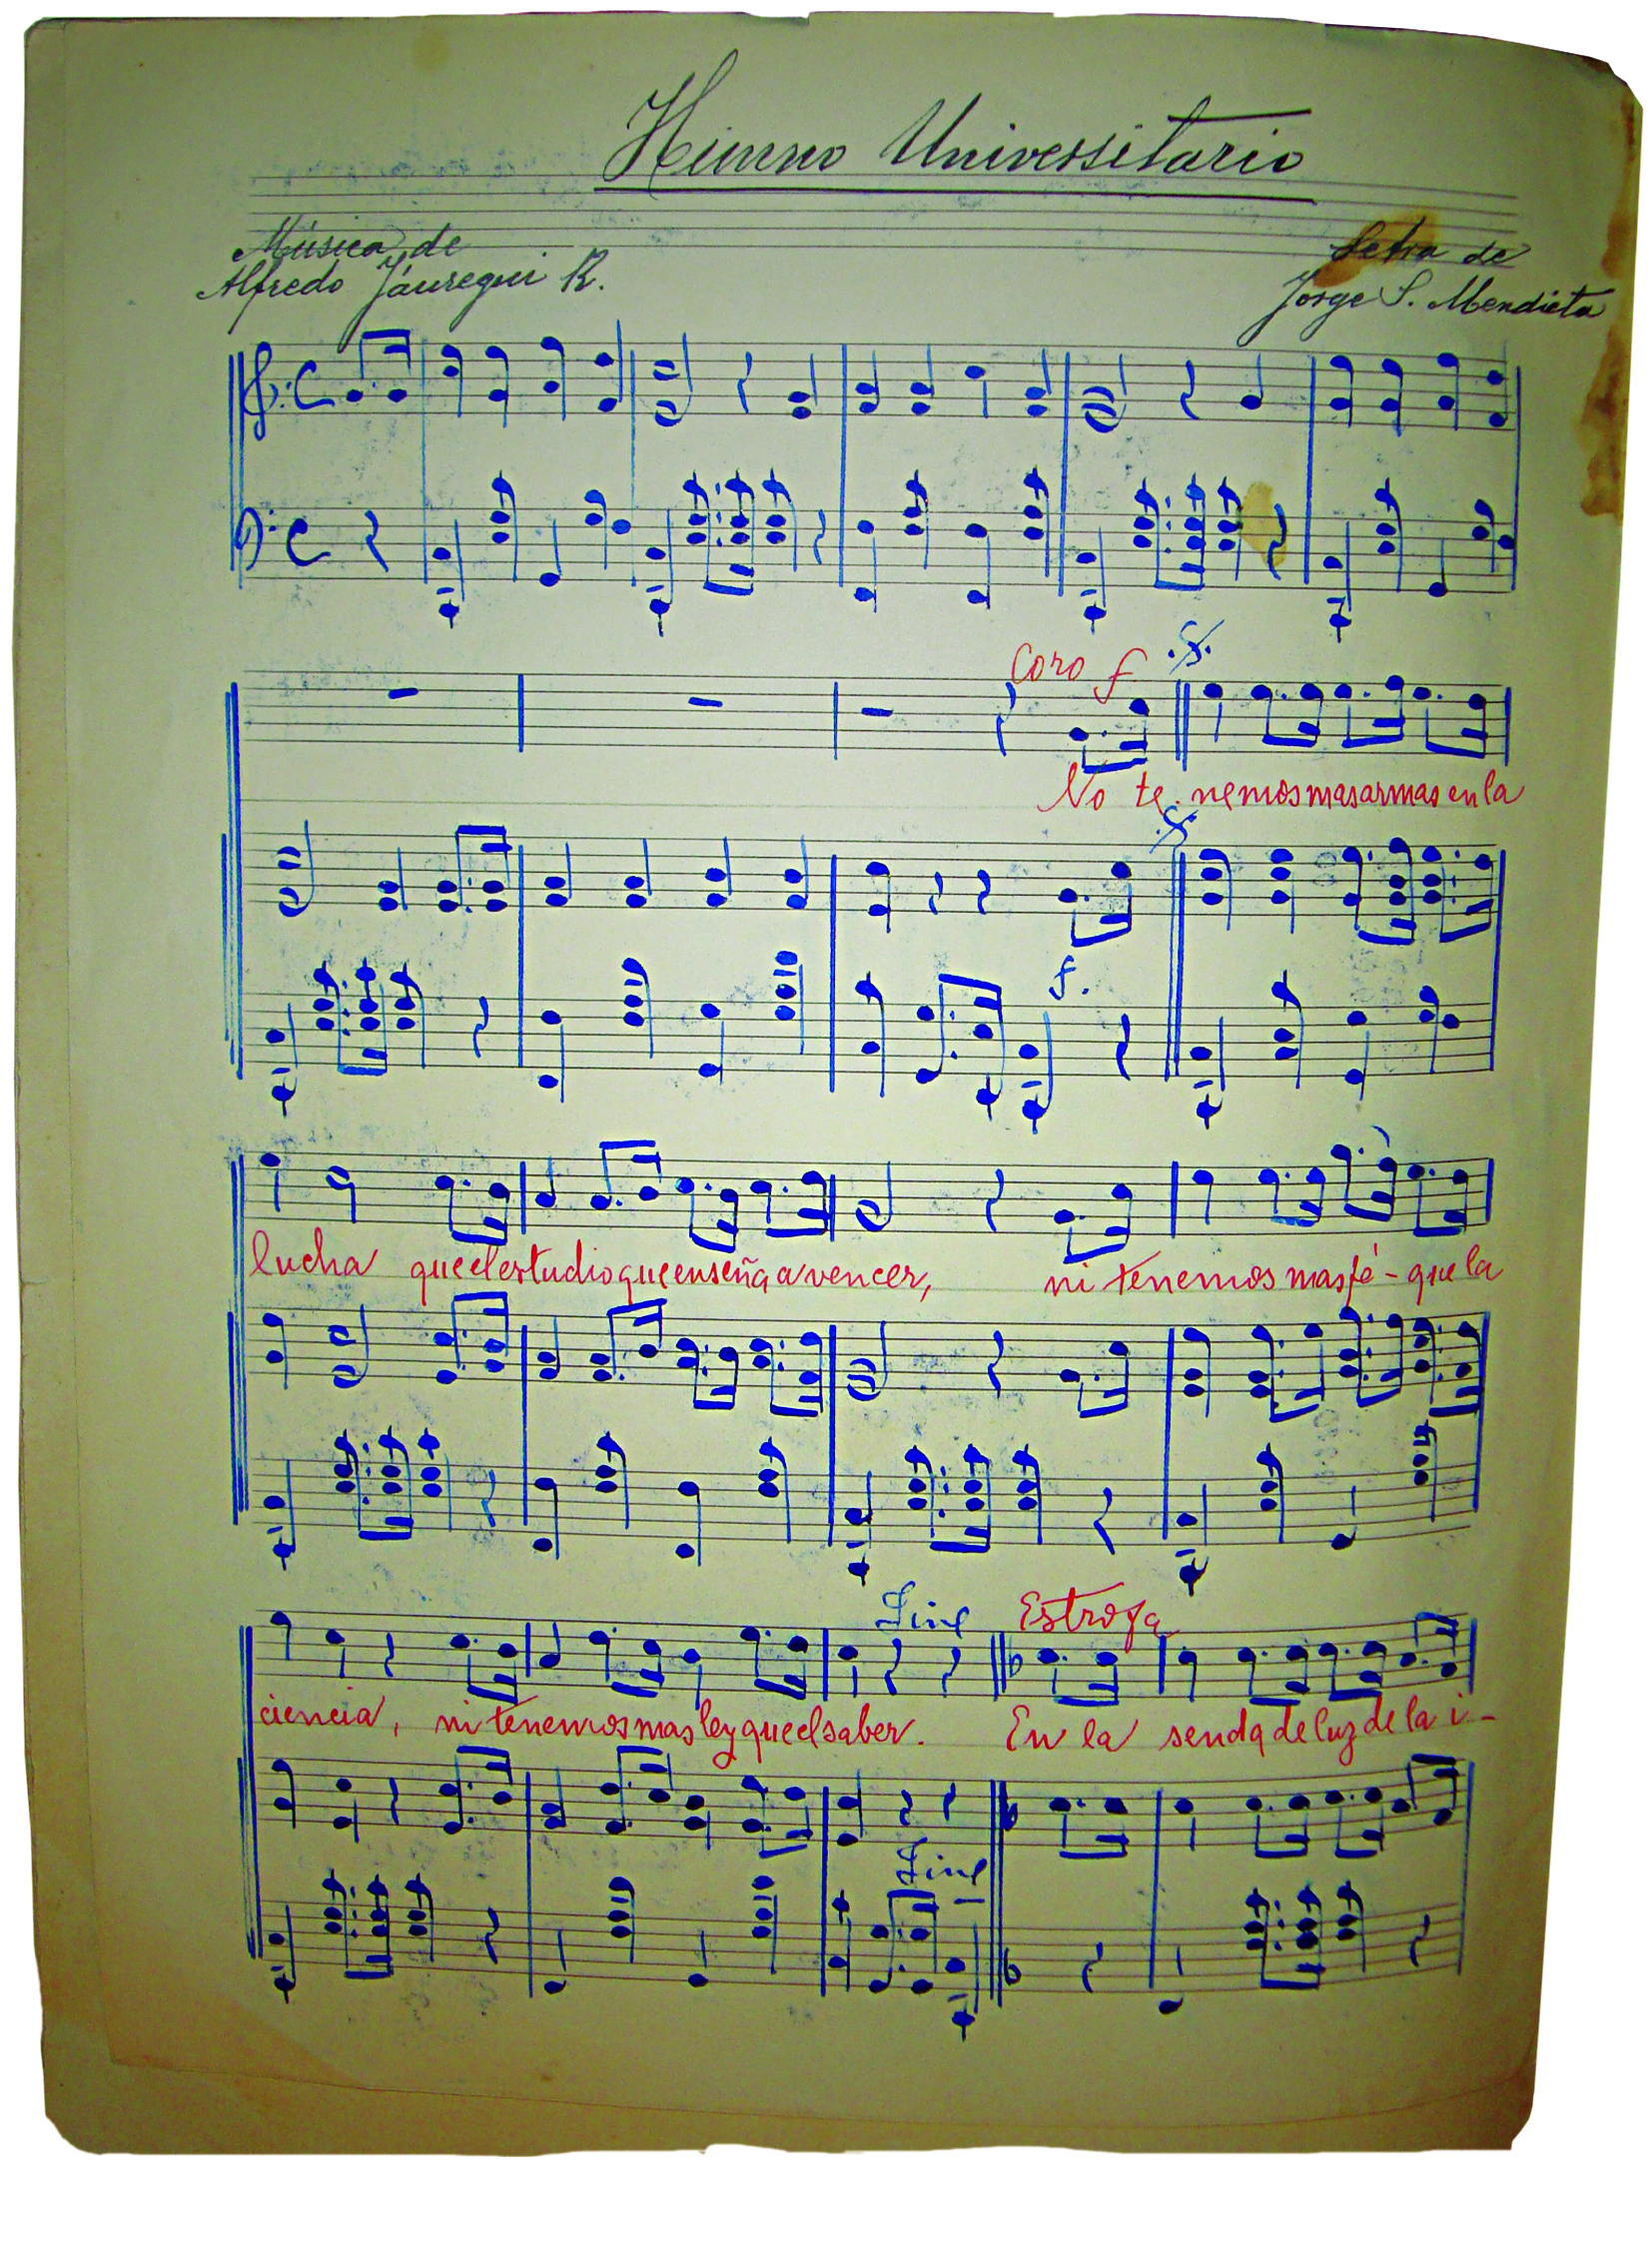 Himno Universitario
Música de
Alfredo Jáuregui R.
Letra de
Jorge S. Mendieta
Coro f
No te nemos mas armas en la
f.
lucha que el estudio que enseña a vencer,
ni tenemos mas fé - que la
Fine
Estrofa
ciencia, ni tenemos mas ley que el saber.
En la senda de luz de la i-
Fine